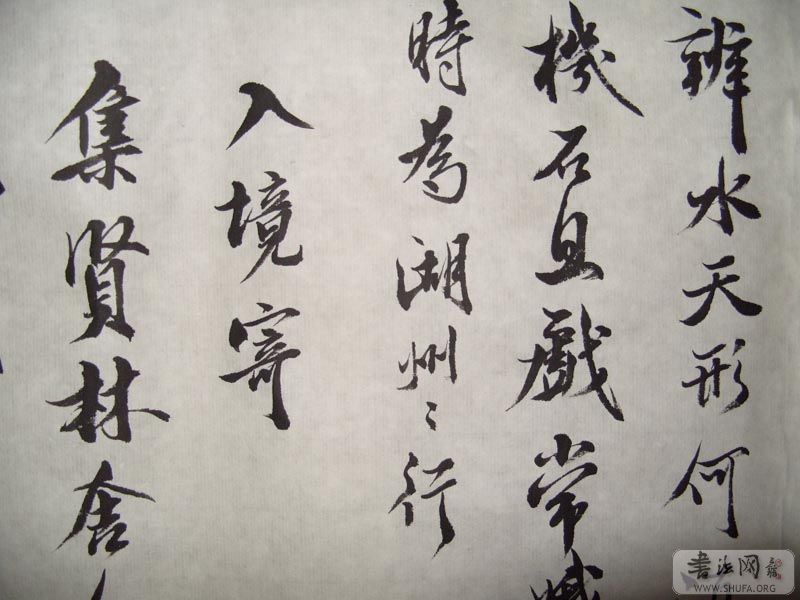 辨水天形何
機石且戲常
時為湖州〻行
入境寄
集賢林舍
书法网
WWW.SHUFA.ORG